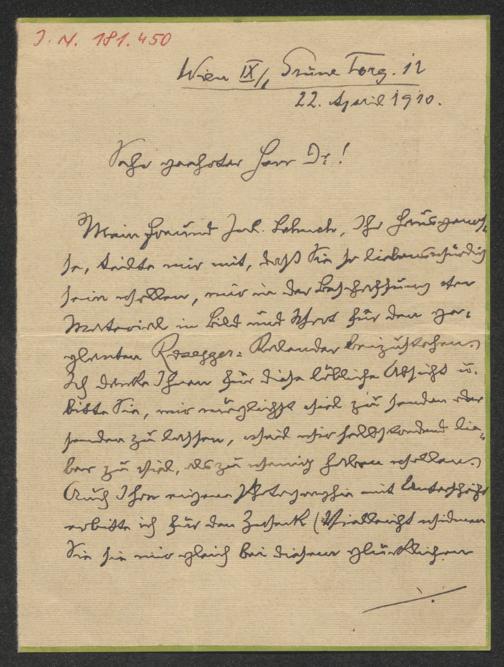 I. N. 181.450
Wien IX/, Grüne Torg. 12
22. April 1910.
Sehr geehrter Herr Dr!
Mein Freund Jos. , Ihr Hausgenos-
se, teilte mir mit, daß Sie so liebenswürdig
sein wollen, mir in der Beschaffung von
Material in Bild und Wort für den ge-
planten Rosegger-Kalender beizustehen.
Ich danke Ihnen für diese löbliche Absicht u.
bitte Sie, mir möglichst viel zu senden oder
senden zu lassen, weil wir selbstredend lie-
ber zu viel, als zu wenig haben wollen.
Auch Ihre eigene Photographie mit Unterschrift
erbitte ich für den Zweck (Vielleicht widmen
Sie sie mir gleich bei diesem glücklichen